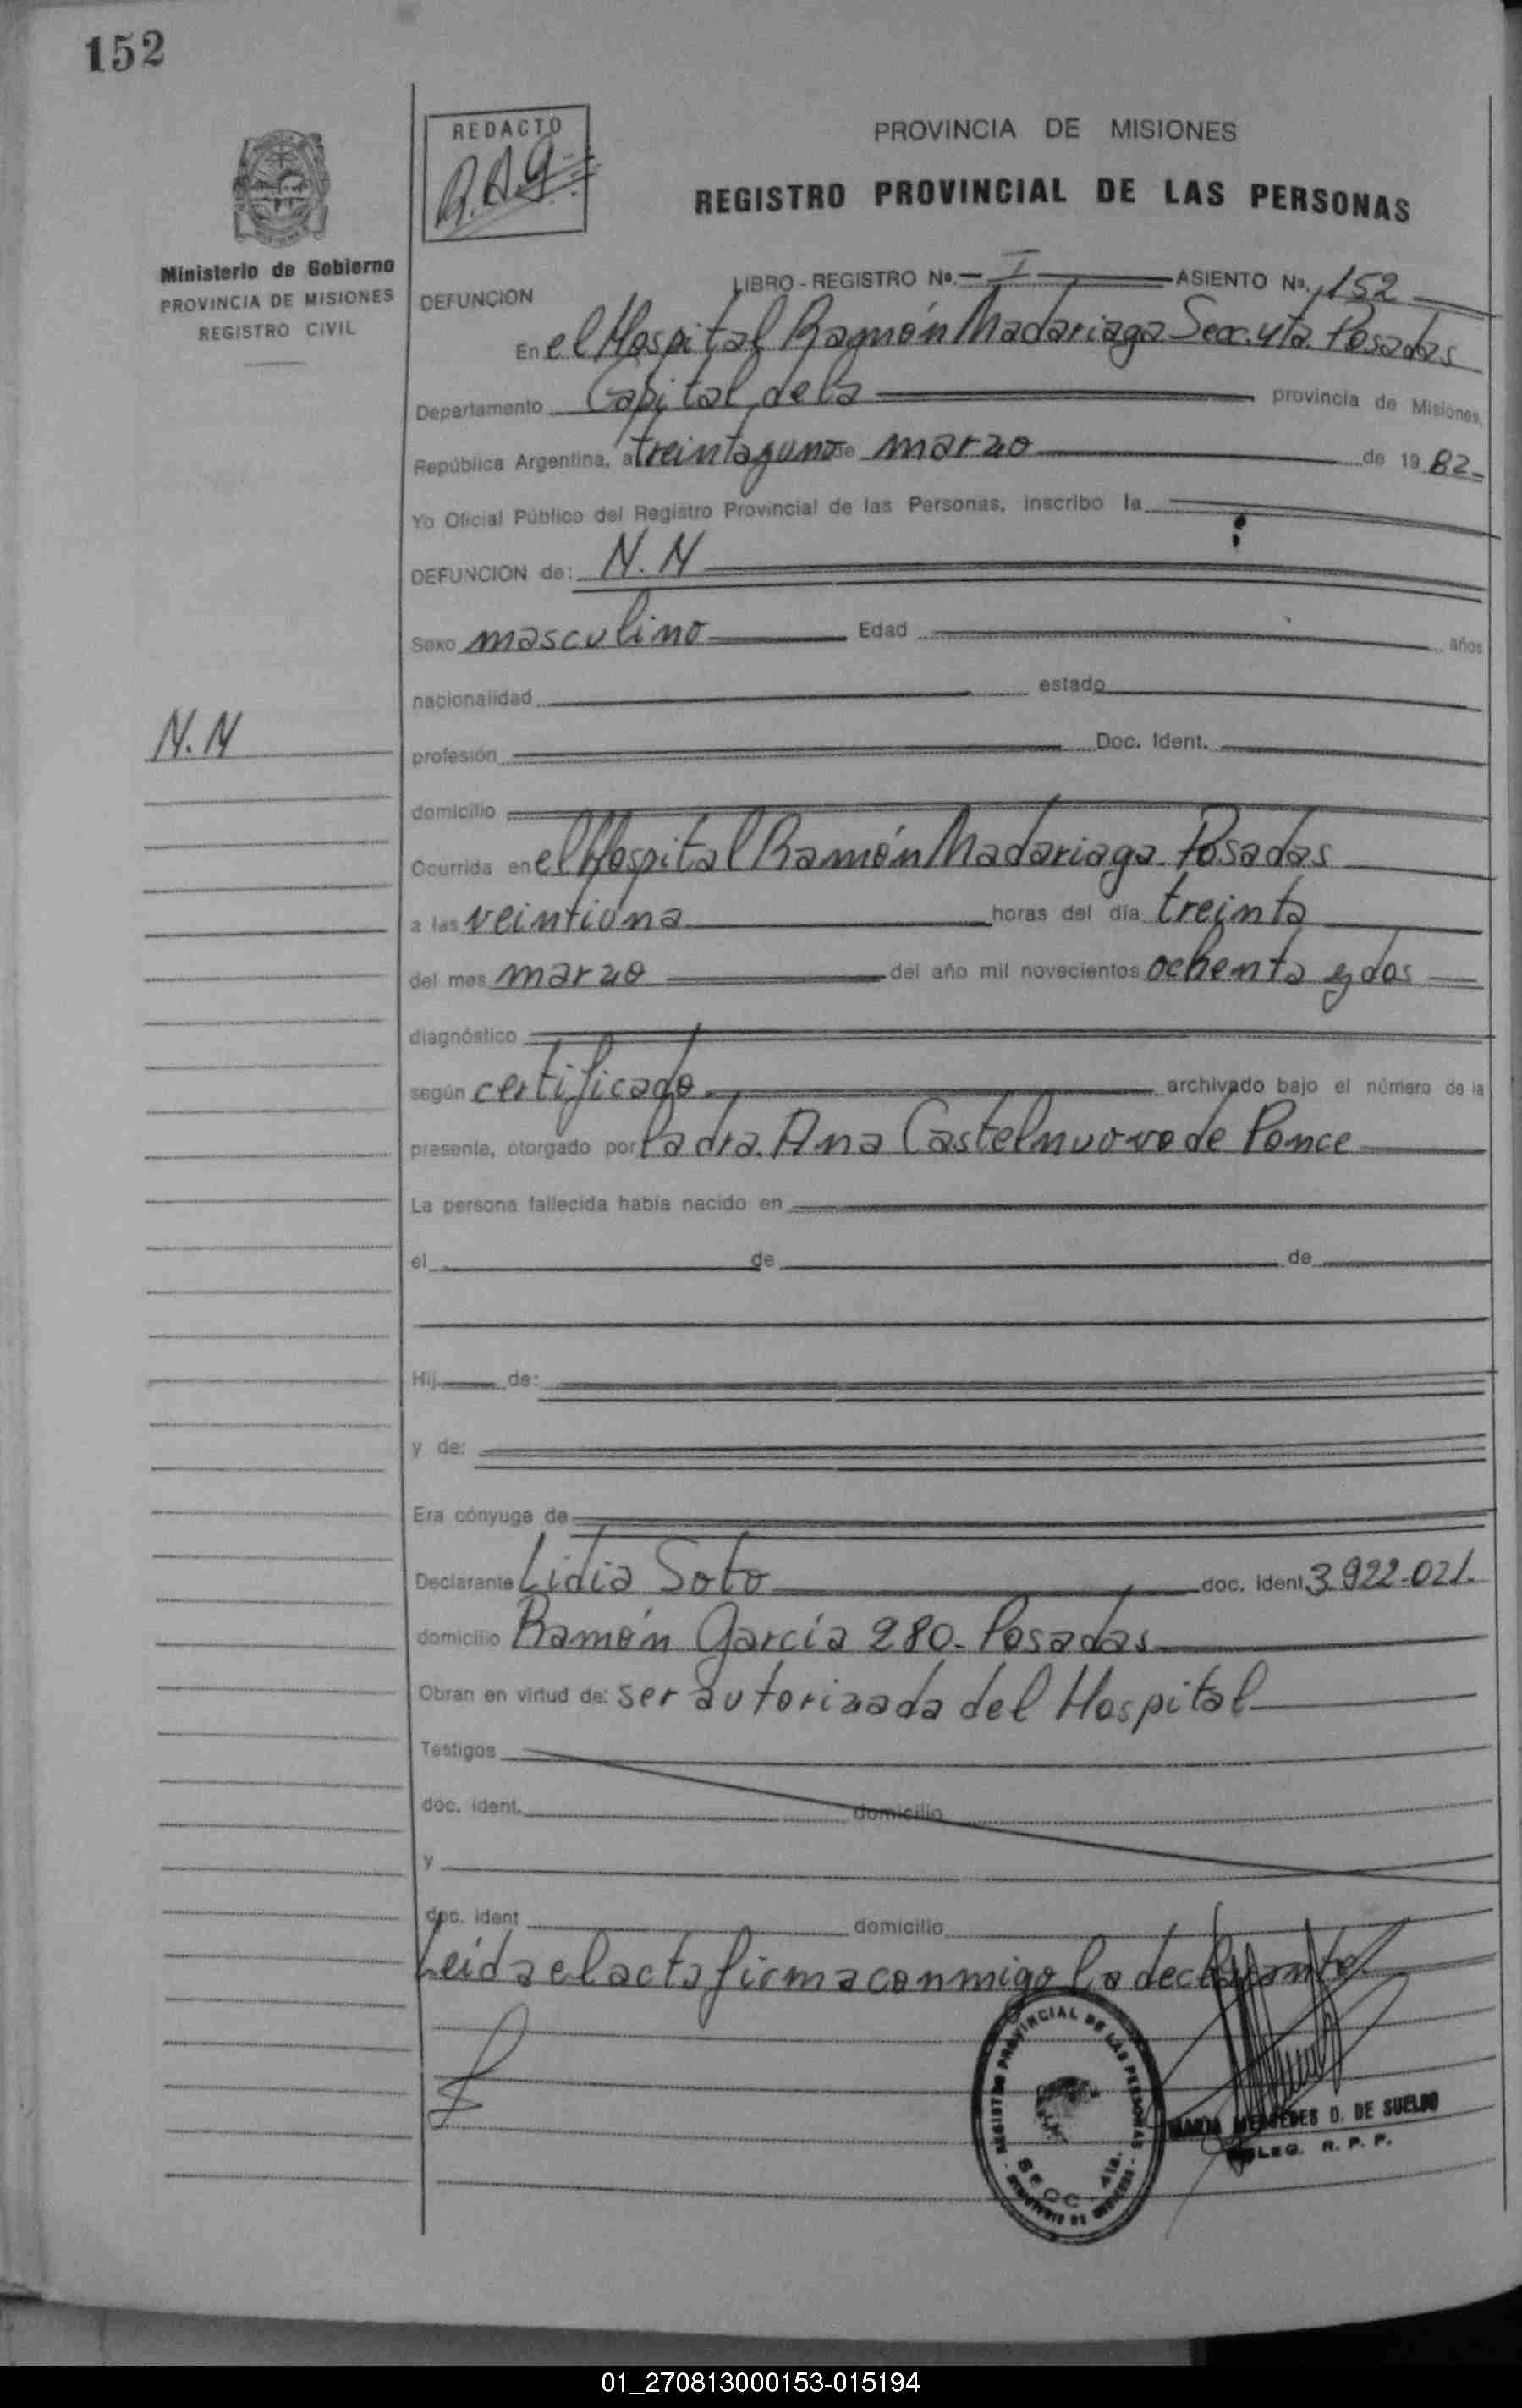 152
REDACTO
PROVINCIA DE MISIONES
REGISTRO PROVINCIAL DE LAS PERSONAS
Ministerio de Gobierno
PROVINCIA DE MISIONES
REGISTRO CIVIL
DEFUNCION
LIBRO - REGISTRO No. I ASIENTO No. 152
En el Hospital Ramón Madariaga Secc. 4ta. Posadas
Departamento Capital, de la provincia de Misiones,
República Argentina, a treintayuno de marzo de 1982-
Yo Oficial Público del Registro Provincial de las Personas, inscribo la
DEFUNCION de: N.N
Sexo masculino Edad años
nacionalidad estado
N.N
profesión Doc. Ident.
domicilio
Ocurrida en el Hospital Ramón Madariaga. Posadas
a las veintiuna horas del día treinta
del mes marzo del año mil novecientos ochenta y dos
diagnóstico
según certificado archivado bajo el número de la
presente, otorgado por la dra. Ana Castelnuovo de Ponce
La persona fallecida había nacido en
el de de
Hij de:
y de:
Era cónyuge de
Declarante Lidia Soto doc. ident. 3.922.021.
domicilio Ramón García 280. Posadas
Obran en virtud de: ser autorizada del Hospital
Testigos
doc. ident. domicilio
y
doc. ident domicilio
Leída el acta firma conmigo la declarante.
REGISTRO PROVINCIAL DE LAS PERSONAS
MARIA MERCEDES D. DE SUELDO
DELEG. R. P. P.
SECC. 4ta.
01_270813000153-015194